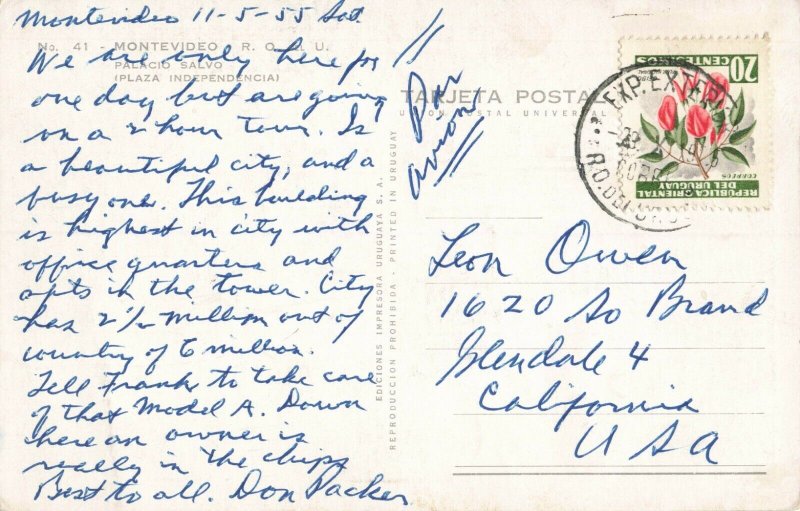 Montevideo 11-5-55 Sat.
No. 41 - MONTEVIDEO R. O. del U.
PALACIO SALVO
(PLAZA INDEPENDENCIA)
We are only here for
one day but are going
on a 2 hour tour. Is
a beautiful city, and a
busy one. This building
is highest in city with
office quarters and
apts in the tower. City
has 2 1/2 million out of
country of 6 million.
Tell Frank to take care
of that Model A. Down
here an owner is
really in the chips
Best to all. Don Packer
EDICIONES IMPRESORA URUGUAYA S. A.
REPRODUCCION PROHIBIDA - PRINTED IN URUGUAY
Par
avion
TARJETA POSTAL
UNION POSTAL UNIVERSAL
EXP. EXTERIOR
20
CENTIMOS
CORREOS
REPUBLICA ORIENTAL
DEL URUGUAY
Leon Owen
1620 So Brand
Glendale 4
California
USA